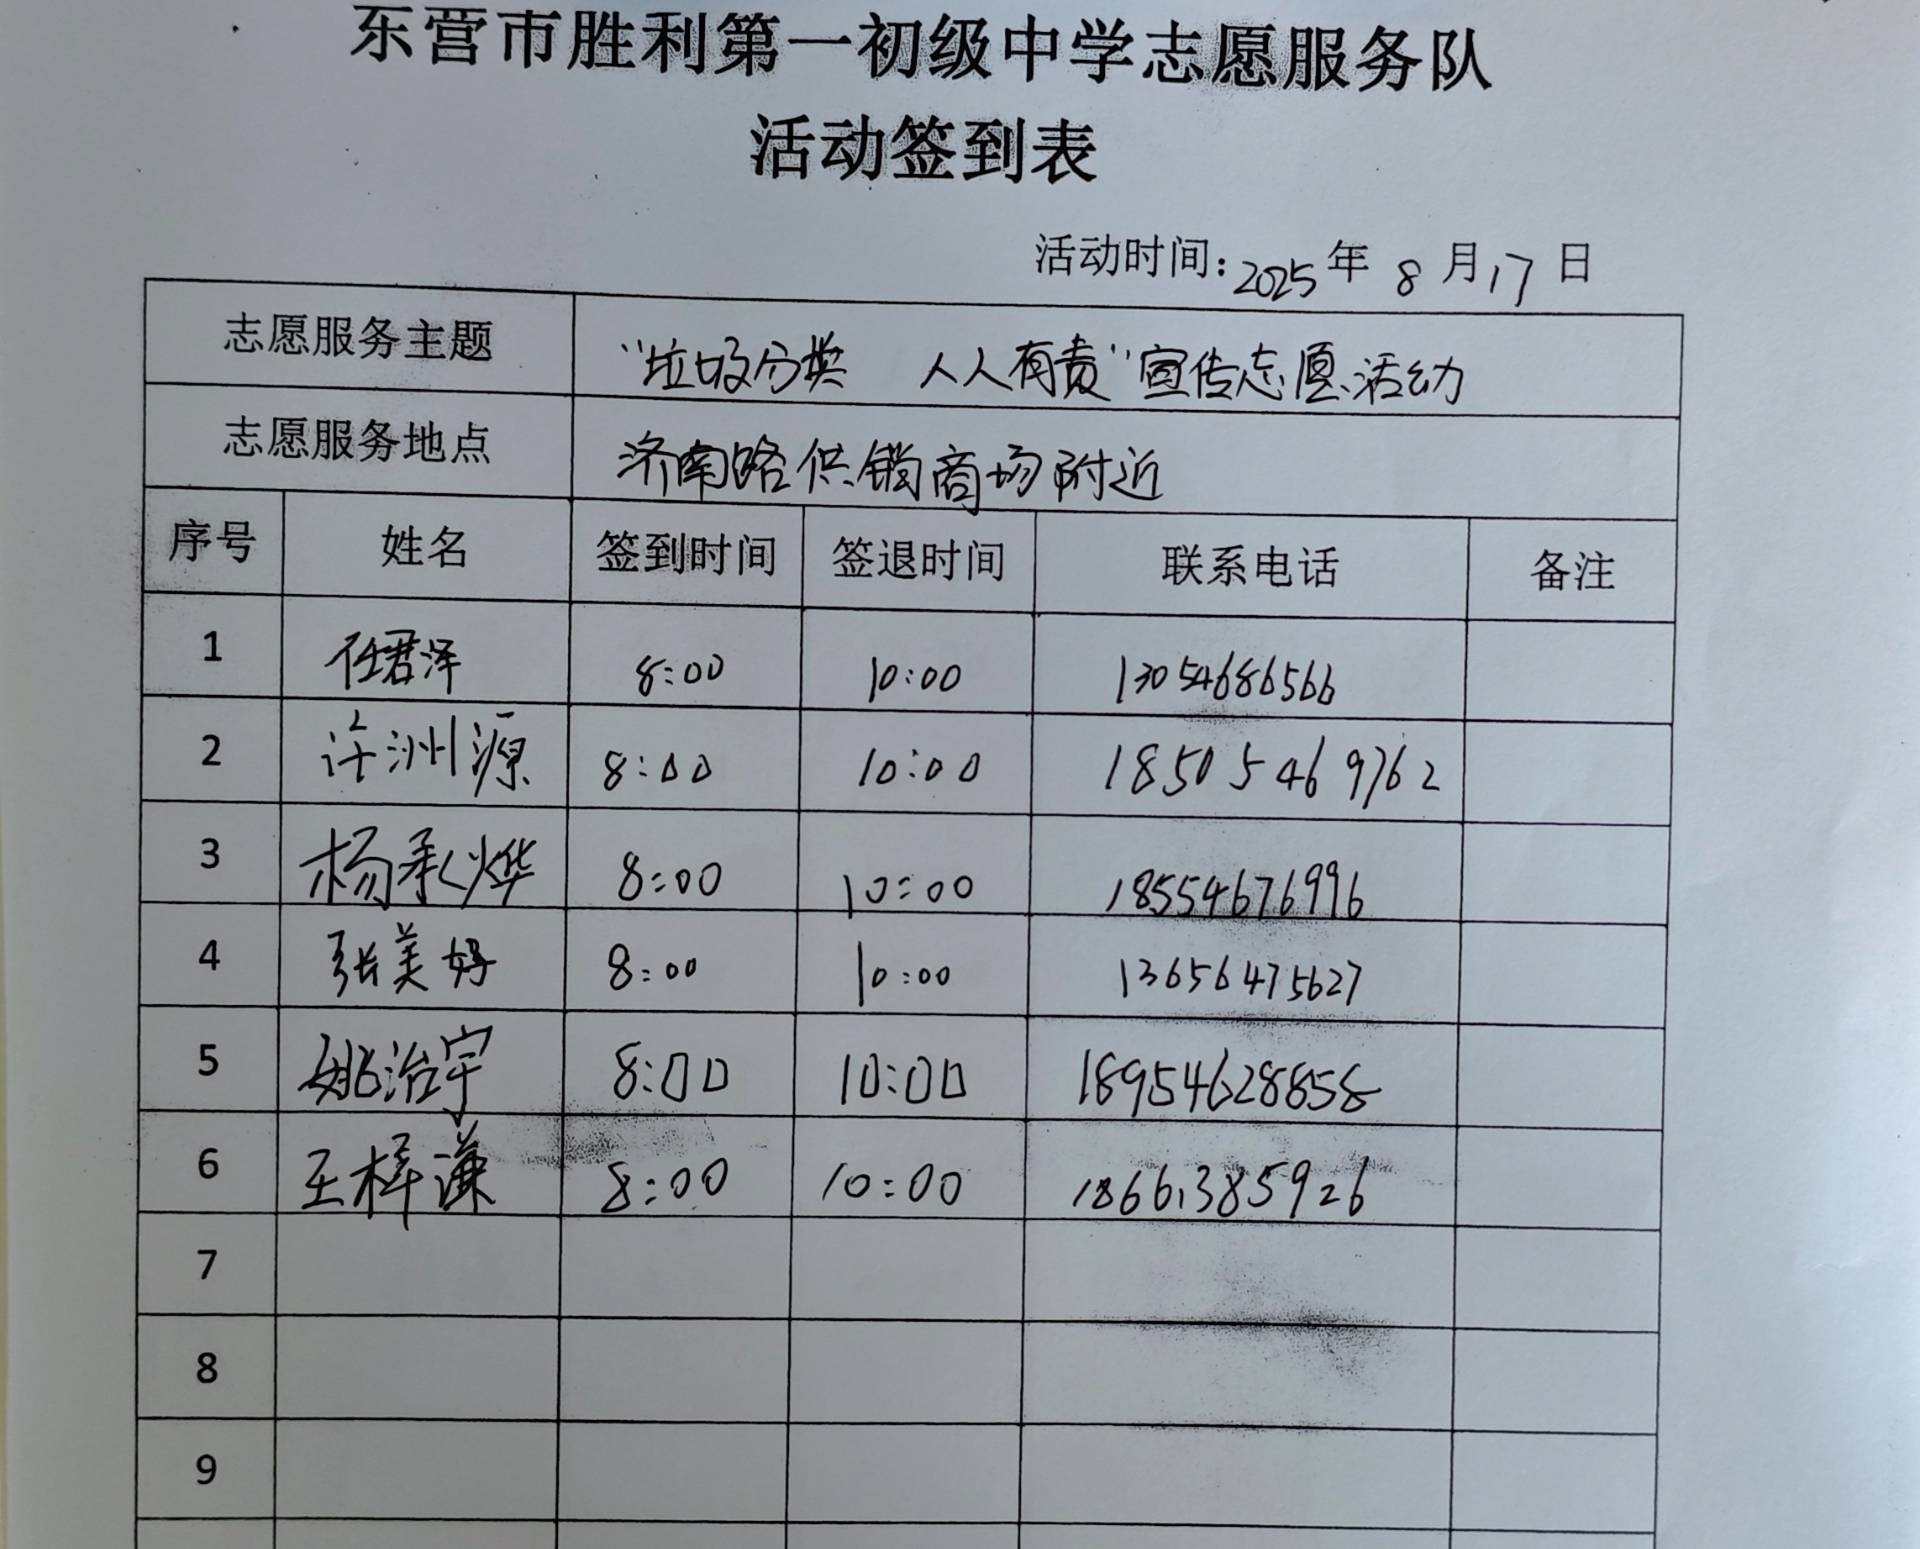 东营市胜利第一初级中学志愿服务队
活动签到表
活动时间:2025年 8 月17 日
志愿服务主题 "垃圾分类 人人有责"宣传志愿活动
志愿服务地点 济南路供销商场附近
序号 姓名 签到时间 签退时间 联系电话 备注
1 任君泽 8:00 10:00 13054686566
2 许洲源 8:00 10:00 18505469762
3 杨承烨 8:00 10:00 18554676996
4 张美好 8:00 10:00 13656475627
5 姚治宇 8:00 10:00 18954628858
6 王梓谦 8:00 10:00 18661385926
7
8
9